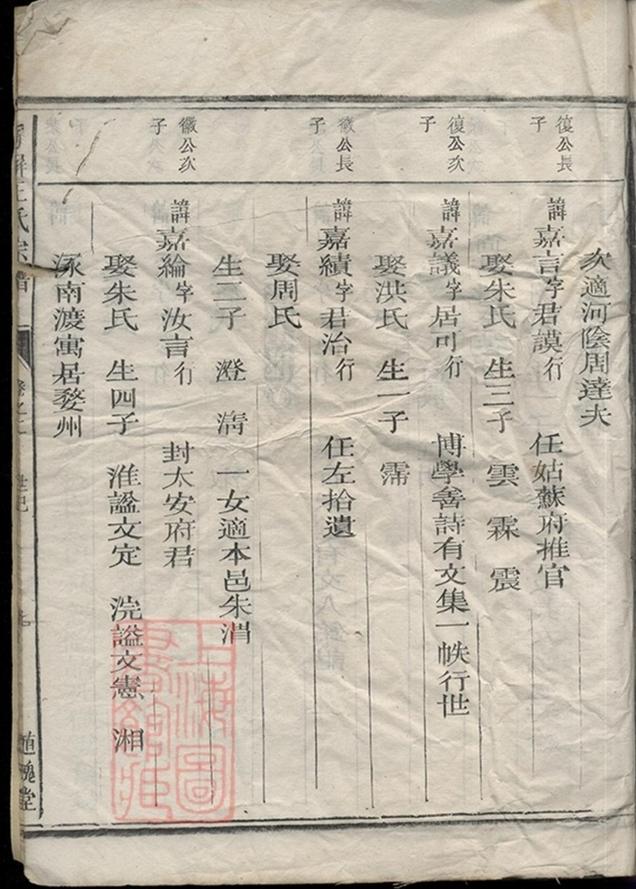 次適河陰周達夫
復公長子
諱嘉言字君謨行 任姑蘇府推官
娶朱氏 生三子 雲 霖 震
復公次子
諱嘉議字居可行 博學善詩有文集一帙行世
娶洪氏 生一子 霈
徽公長子
諱嘉績字君治行 任左拾遺
娶周氏
生二子 澄 清 一女適本邑朱渭
徽公次子
諱嘉綸字汝言行 封太安府君
娶朱氏 生四子 淮謚文定 浣謚文憲 湘
涿南渡寓居婺州
王氏宗譜
卷之二
世紀
槐堂
上海圖書館藏